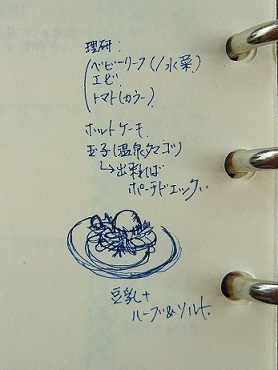 理研:
ベビーリーフ(/水菜)
エビ
トマト(カラー)
ホットケーキ
玉子(温泉タマゴ)
↳出来れば
ポーチドエッグ。
豆乳+
ハーブ&ソルト。